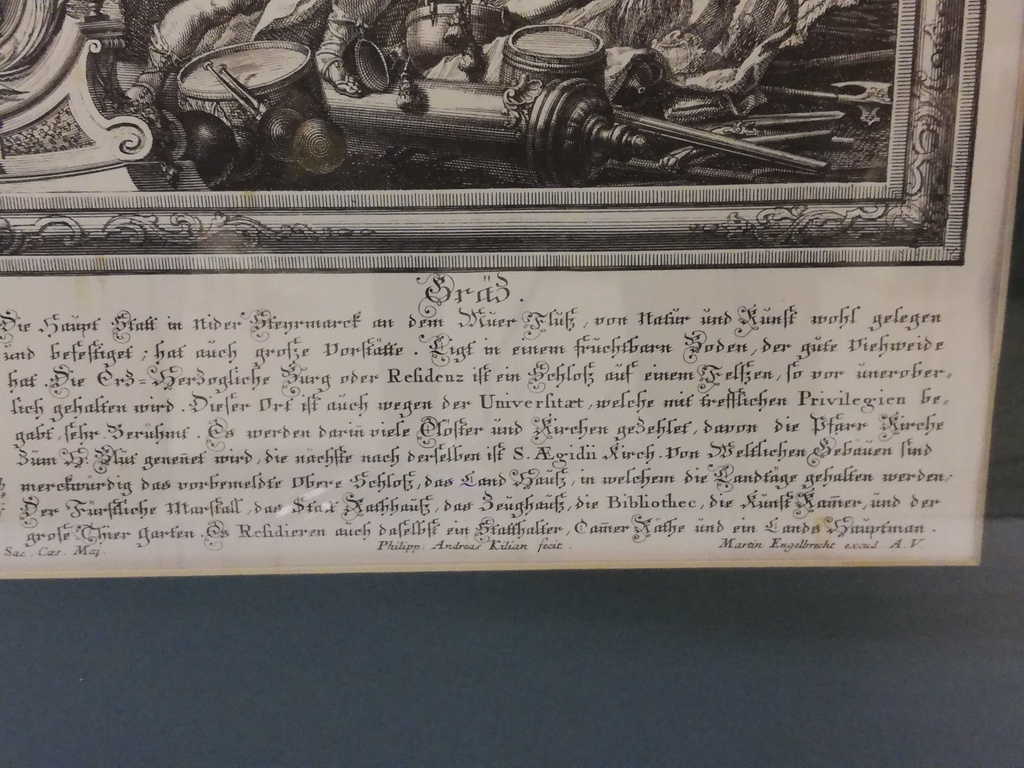 Gräz.
Die Haupt Statt in Nider Steyrmarck an dem Müer Flüß, von Natür und Künst wohl gelegen
und befestiget; hat auch große Vorstätte. Ligt in einem früchtbarn Boden, der güte Viehweide
hat. Die Erz=Herzogliche Bürg oder Residenz ist ein Schloß auf einem Felßen, so vor unerober=
lich gehalten wird. Dieser Ort ist auch wegen der Universitæt, welche mit trefflichen Privilegien be=
gabt, sehr Berühmt. Es werden darin viele Clöster und Kirchen gezehlet, davon die Pfarr Kirche
züm H. Blüt genen̄et wird, die nächste nach derselben ist S. Ægidii Kirch. Von Weltlichen Gebäuen sind
merckwürdig das vorbemeldte Obere Schloß, das Land Hauß, in welchem die Landtäge gehalten werden;
Der Fürstliche Marstall, das Statt Rathhauß, das Zeughauß, die Bibliothec, die Künst Kam̄er, und der
große Thier Garten. Es Residieren auch daselbst ein Statthalter, Cam̄er Räthe und ein Lands Häuptman.
Sac. Cæs. Maj.
Philipp. Andreas Kilian fecit.
Martin Engelbrecht excud. A.V.